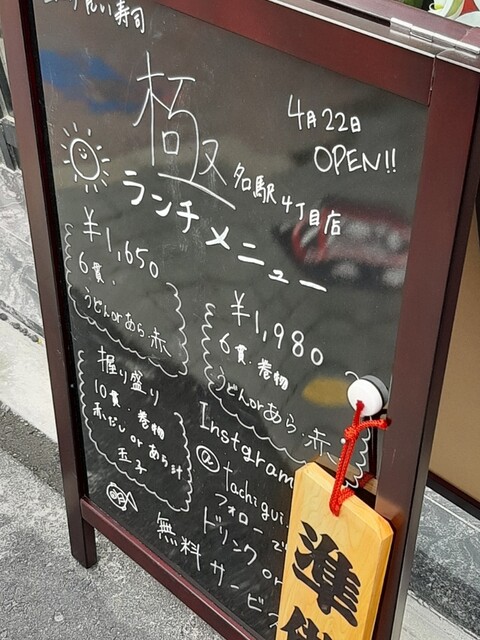 ぐい寿司
極
4月22日
OPEN!!
名駅4丁目店
ランチメニュー
¥1,650
6貫・
うどんorあら・赤
¥1,980
6貫・巻物
うどんorあら・赤
握り盛り
10貫・巻物
赤だし or あら汁
玉子
Instgram
@tachigui.
フォローで
ドリンク or
無料サービス
準備